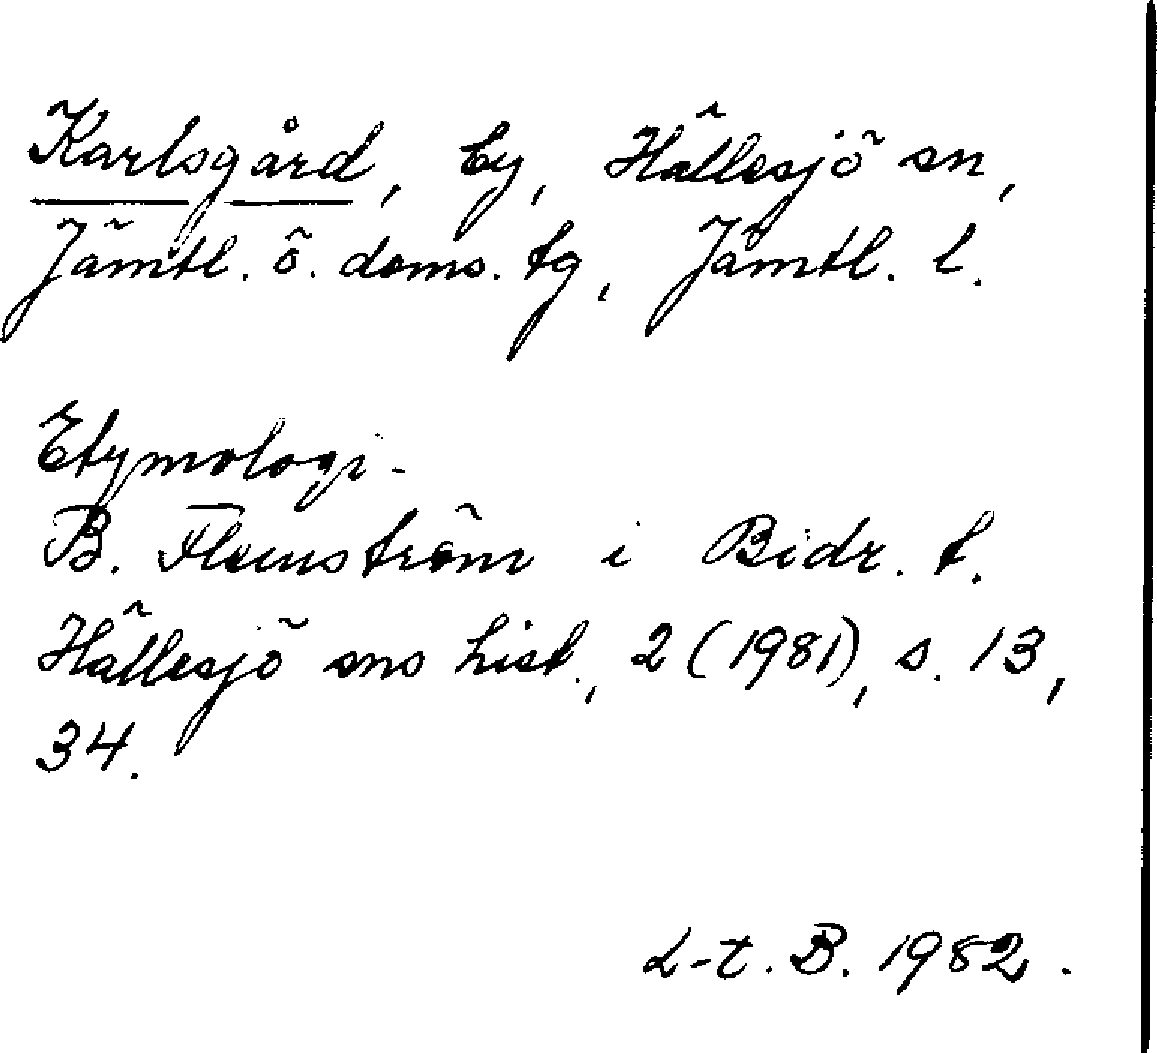 Karlsgård, by, Hällesjö sn,
Jämtl. ö. doms. tg, Jämtl. l.
Etymologi.
B. Flemström i Bidr. t.
Hällesjö sns hist., 2 (1981), s. 13,
34.
L-t. B. 1982.